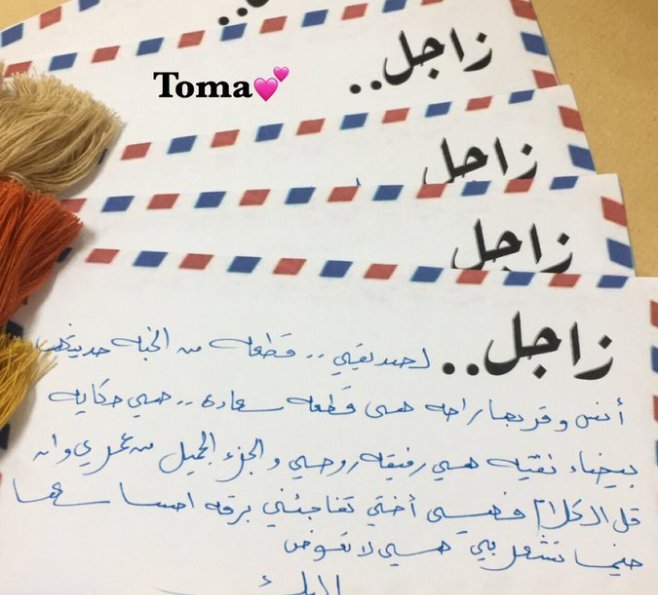 زاجل..
Toma
زاجل
زاجل
زاجل.. لصديقتي .. قطعه من الجنه حديثها
أنس وقربها راحه هي قطعه سعاده.. هي حكايه
بيضاء نقيه هي رفيقه روحي والجزء الجميل من عمري وان
قل الكلام فهي أختي تفاجئني برقه احساسها
حينما تشعر بي هي لا تعوض